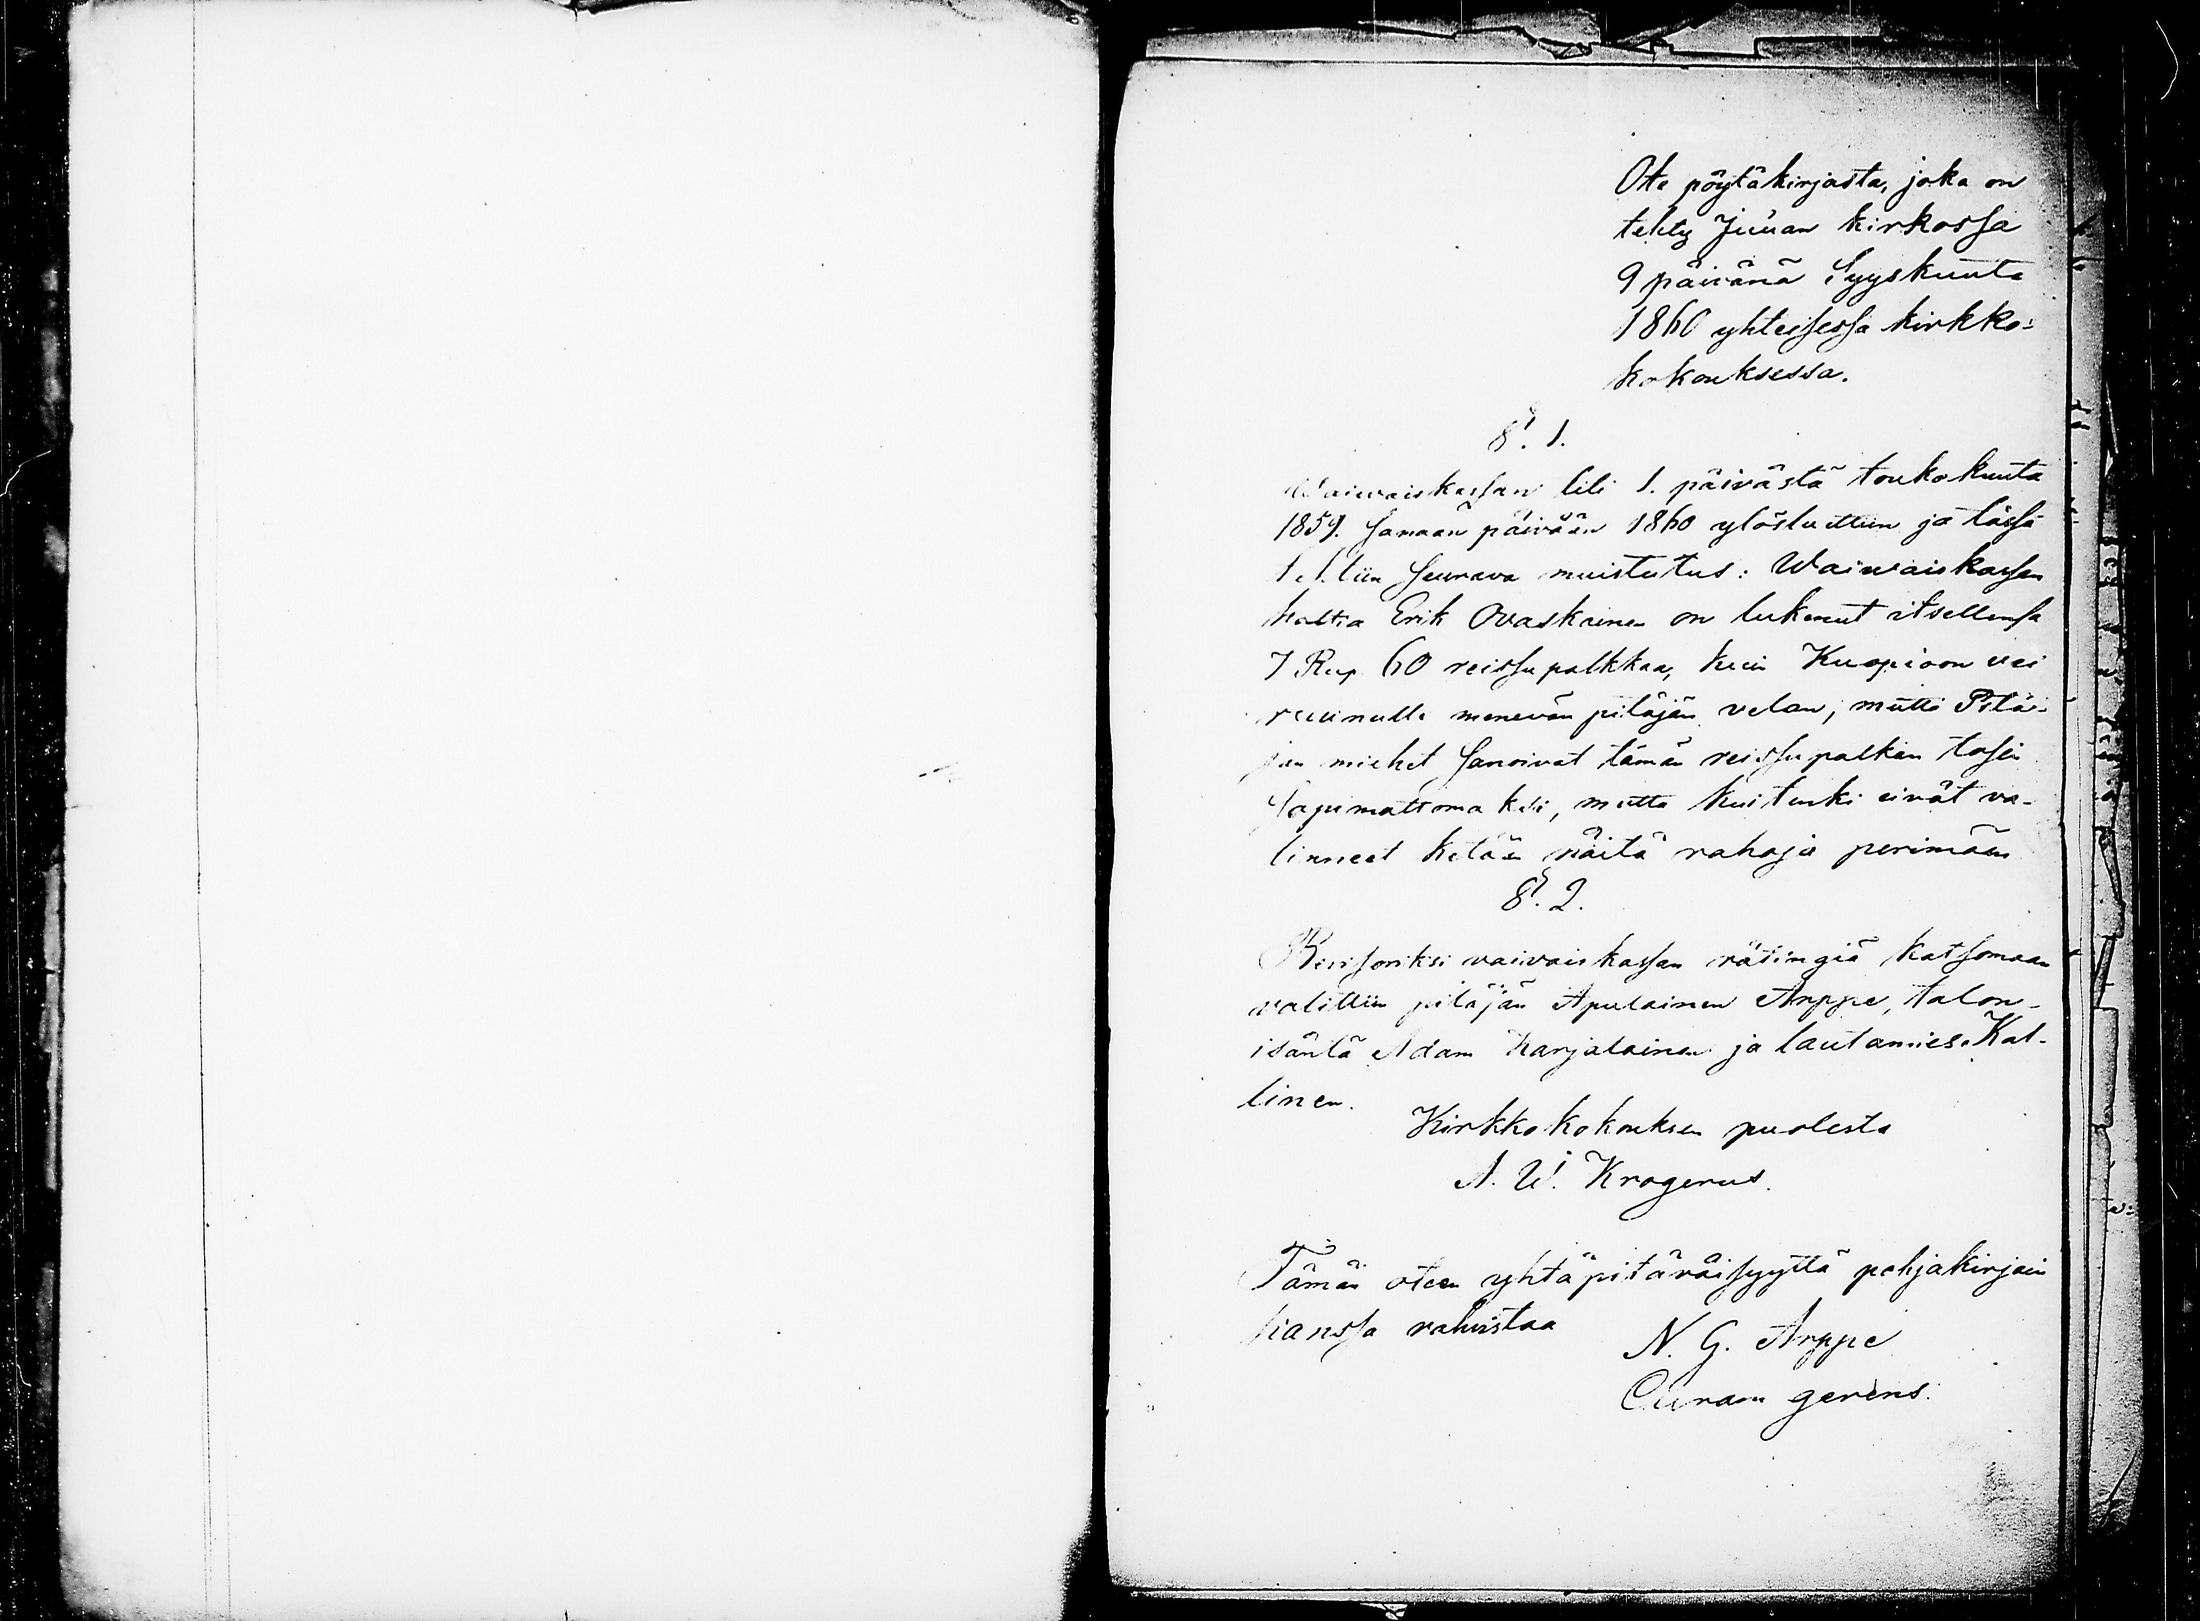 Ote pöytäkirjasta, joka on
tehty Juuan kirkossa
9 päivänä Syyskuuta
1860 yhteisessa kirkko-
kokouksessa.
§. 1.
Waiwaiskassan tili 1. päivästä toukokuuta
1859. samaan päivään 1860 ylösluettiin ja tässä
tehtiin seurava muistutus: Waiwaiskassan
haltia Erik Ovaskainen on lukenut itsellensa
7 Rup 60 reissupalkkaa, kuin Kuopioon vei
ruunulle menevän pitäjän velan, mutta Pitä-
jän miehet sanoivat tämän reissupalkan
sopimattomaksi, mutta kuitenki eivät va-
linneet ketään näitä rahoja perimään
§. 2.
Revisoriksi vaivaiskassan rätingiä katsomaan
valittiin pitäjän Apulainen Arppe, talon-
isäntä Adam Karjalainen ja lautamies Kal-
linen.
Kirkkokokouksen puolesta
A. W. Krogerus.
Tämän oteen yhtäpitäväisyyttä pohjakirjain
kanssa vahvistaa
N. G. Arppe
Curam gerens.